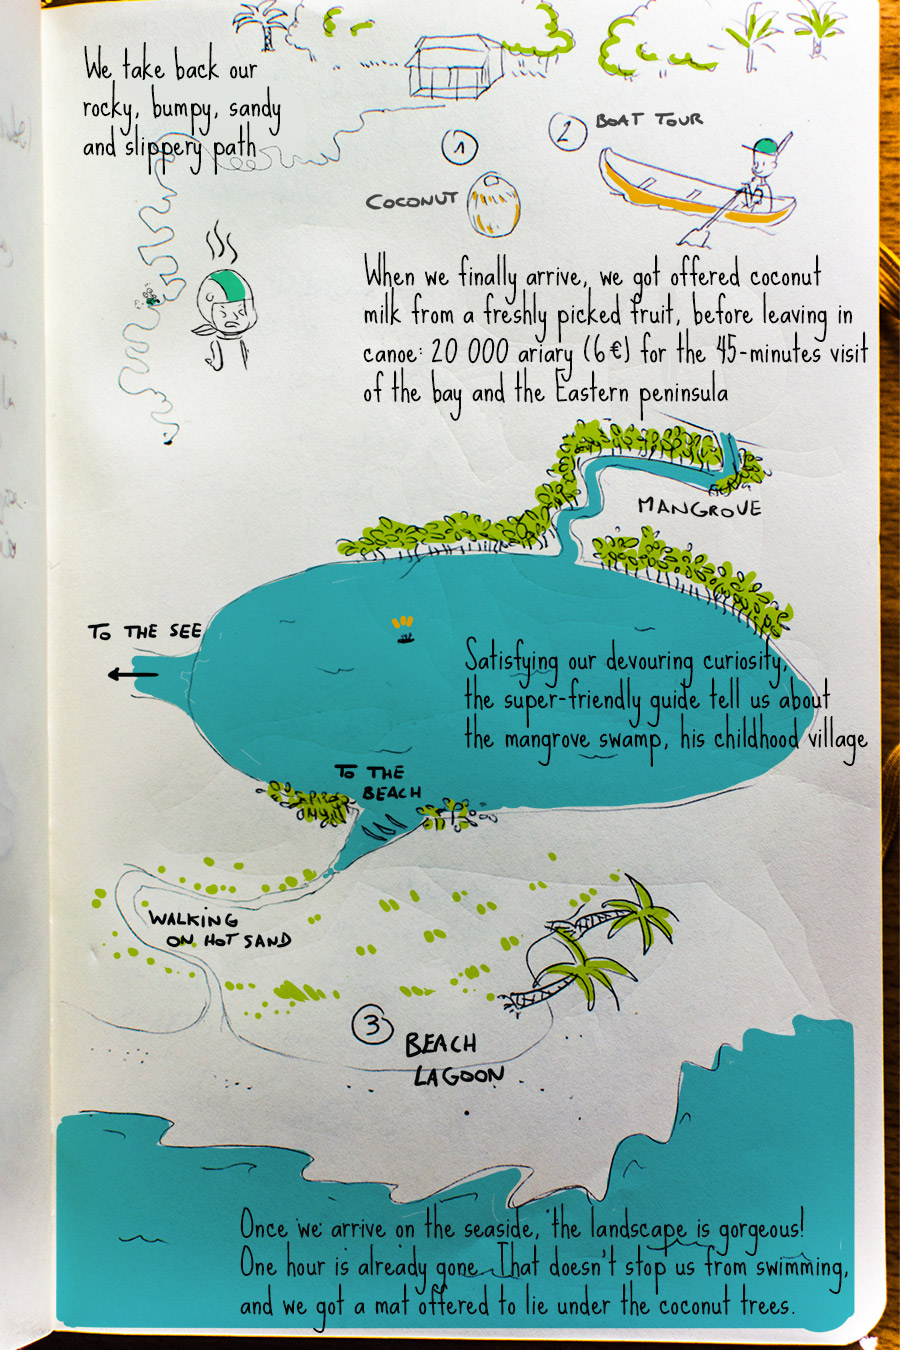 We take back our
rocky, bumpy, sandy
and slippery path
1
COCONUT
2
BOAT TOUR
When we finally arrive, we got offered coconut
milk from a freshly picked fruit, before leaving in
canoe: 20 000 ariary (6€) for the 45-minutes visit
of the bay and the Eastern peninsula
MANGROVE
TO THE SEE
Satisfying our devouring curiosity,
the super-friendly guide tell us about
the mangrove swamp, his childhood village
TO THE
BEACH
WALKING
ON HOT SAND
3
BEACH
LAGOON
Once we arrive on the seaside, the landscape is gorgeous!
One hour is already gone. That doesn't stop us from swimming,
and we got a mat offered to lie under the coconut trees.